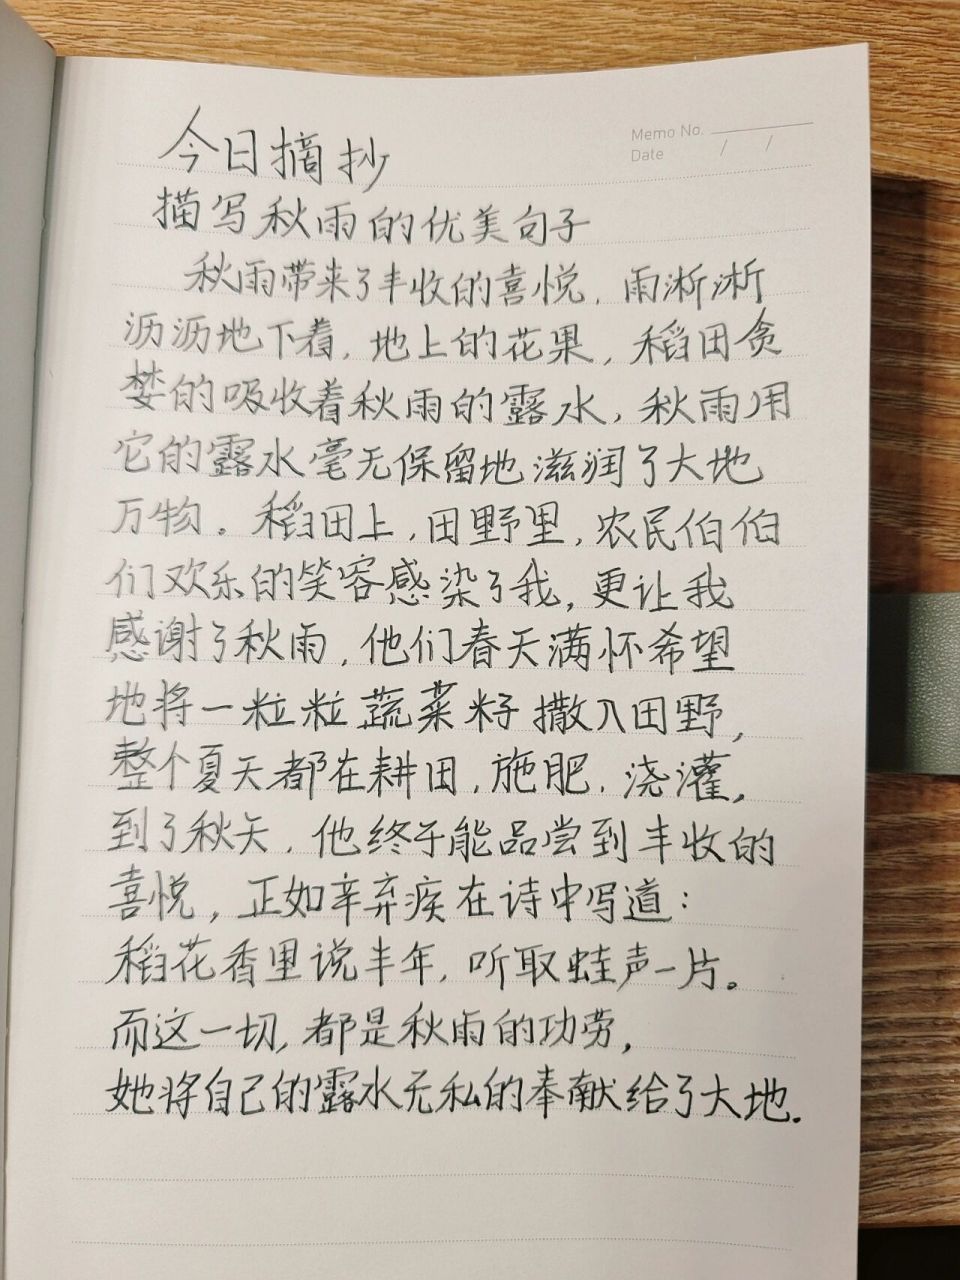 Memo No.
Date / /
今日摘抄
描写秋雨的优美句子
秋雨带来了丰收的喜悦，雨淅淅
沥沥地下着，地上的花果，稻田贪
婪的吸收着秋雨的露水，秋雨用
它的露水毫无保留地滋润了大地
万物。稻田上，田野里，农民伯伯
们欢乐的笑容感染了我，更让我
感谢了秋雨，他们春天满怀希望
地将一粒粒蔬菜籽撒入田野，
整个夏天都在耕田，施肥，浇灌，
到了秋天，他终于能品尝到丰收的
喜悦，正如辛弃疾在诗中写道：
稻花香里说丰年，听取蛙声一片。
而这一切，都是秋雨的功劳，
她将自己的露水无私的奉献给了大地.